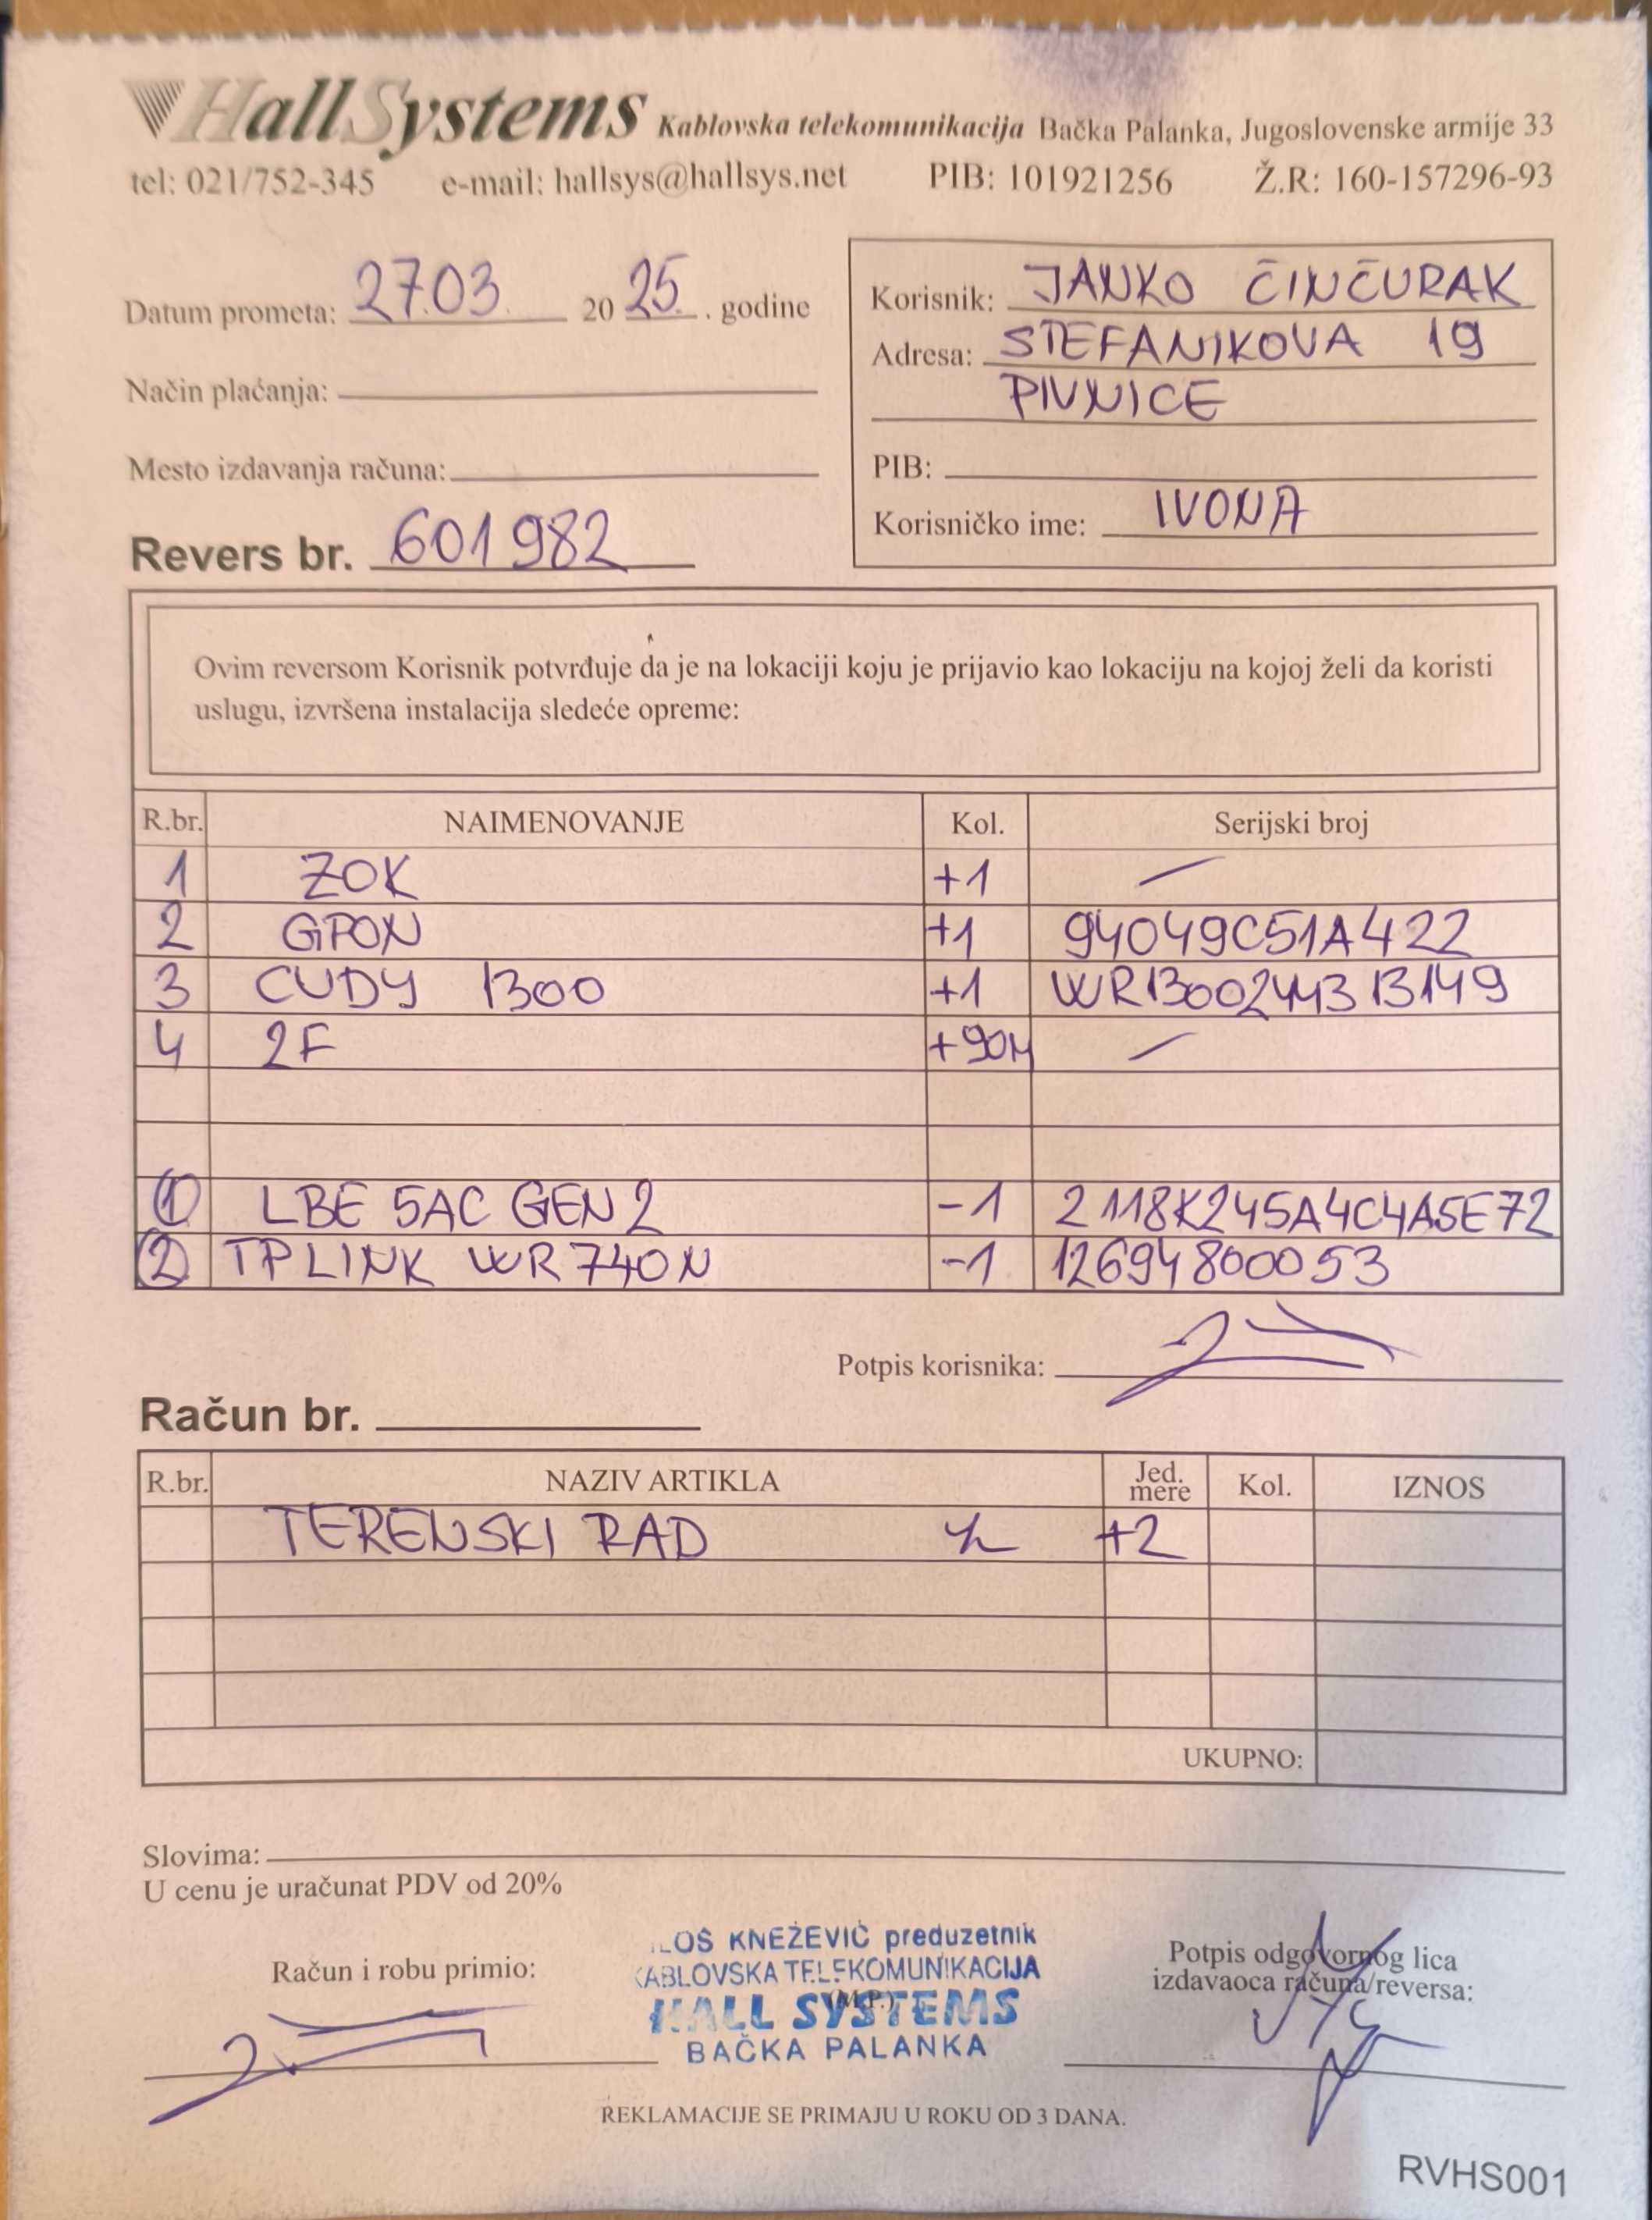 HallSystems Kablovska telekomunikacija Bačka Palanka, Jugoslovenske armije 33
tel: 021/752-345 e-mail: hallsys@hallsys.net PIB: 101921256 Ž.R: 160-157296-93
Datum prometa: 27.03. 20 25. . godine
Način plaćanja:
Mesto izdavanja računa:
Revers br. 601982
Korisnik: JANKO ČINČURAK
Adresa: STEFANIKOVA 19
PIVNICE
PIB:
Korisničko ime: IVONA
Ovim reversom Korisnik potvrđuje da je na lokaciji koju je prijavio kao lokaciju na kojoj želi da koristi
uslugu, izvršena instalacija sledeće opreme:
R.br. NAIMENOVANJE Kol. Serijski broj
1 ZOK +1 —
2 GPON +1 94049C51A422
3 CUDY 1300 +1 WR1300244313149
4 2F +90M —
1 LBE 5AC GEN2 -1 2118K245A4C4A5E72
2 TP LINK WR740N -1 12694800053
Potpis korisnika:
Račun br.
R.br. NAZIV ARTIKLA Jed. mere Kol. IZNOS
TERENSKI RAD h +2
UKUPNO:
Slovima:
U cenu je uračunat PDV od 20%
Račun i robu primio:
LOŠ KNEŽEVIĆ preduzetnik
KABLOVSKA TELEKOMUNIKACIJA
(M.P.)
HALL SYSTEMS
BAČKA PALANKA
Potpis odgovornog lica
izdavaoca računa/reversa:
REKLAMACIJE SE PRIMAJU U ROKU OD 3 DANA.
RVHS001